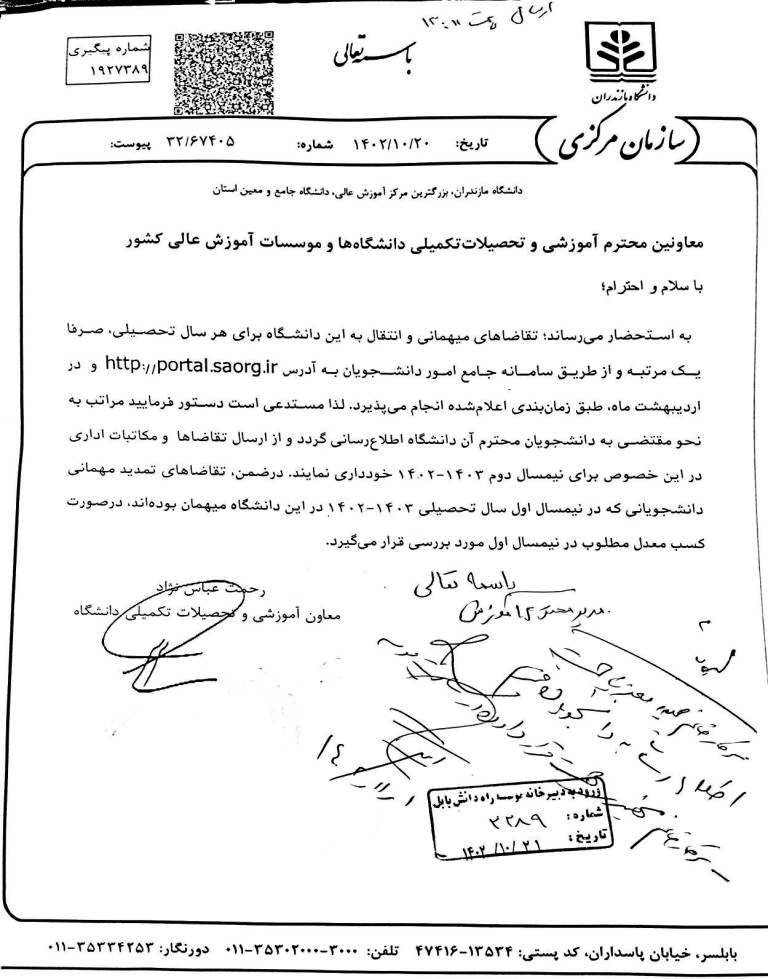 ارسال
شماره پیگیری
۱۹۲۷۳۸۹
باسمه‌تعالی
دانشگاه مازندران
سازمان مرکزی
تاریخ: ۱۴۰۲/۱۰/۲۰ شماره: ۳۲/۶۷۴۰۵ پیوست:
دانشگاه مازندران، بزرگترین مرکز آموزش عالی، دانشگاه جامع و معین استان
معاونین محترم آموزشی و تحصیلات تکمیلی دانشگاه‌ها و موسسات آموزش عالی کشور
با سلام و احترام؛
به استحضار می‌رساند؛ تقاضاهای میهمانی و انتقال به این دانشگاه برای هر سال تحصیلی، صرفا
یک مرتبه و از طریق سامانه جامع امور دانشجویان به آدرس http://portal.saorg.ir و در
اردیبهشت ماه، طبق زمان‌بندی اعلام‌شده انجام می‌پذیرد. لذا مستدعی است دستور فرمایید مراتب به
نحو مقتضی به دانشجویان محترم آن دانشگاه اطلاع‌رسانی گردد و از ارسال تقاضاها و مکاتبات اداری
در این خصوص برای نیمسال دوم ۱۴۰۳-۱۴۰۲ خودداری نمایند. درضمن، تقاضاهای تمدید مهمانی
دانشجویانی که در نیمسال اول سال تحصیلی ۱۴۰۳-۱۴۰۲ در این دانشگاه میهمان بوده‌اند، درصورت
کسب معدل مطلوب در نیمسال اول مورد بررسی قرار می‌گیرد.
رحمت عباس نژاد
معاون آموزشی و تحصیلات تکمیلی دانشگاه
باسمه تعالی
مدیر محترم آموزش
ورود به دبیرخانه موسسه راه دانش بابل
شماره: ۳۲۸۹
تاریخ: ۱۴۰۲/۱۰/۲۱
بابلسر، خیابان پاسداران، کد پستی: ۱۳۵۳۴-۴۷۴۱۶ تلفن: ۳۰۰۰-۳۵۳۰۲۰۰۰-۰۱۱ دورنگار: ۳۵۳۳۴۲۵۳-۰۱۱